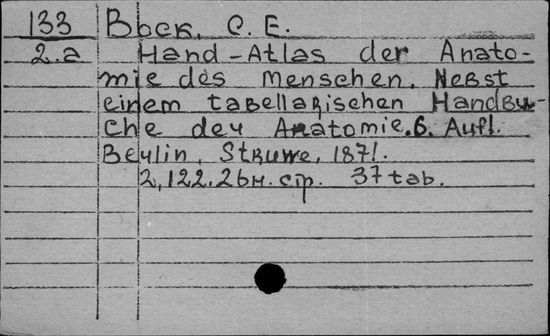 133 Bock, C. E.
2.a Hand-Atlas der Anato-
mie des Menschen. Nebst
einem tabellarischen Handbu-
che der Anatomie. 6. Aufl.
Berlin, Struwe, 1871.
2, 122. 26н. стр. 37 tab.